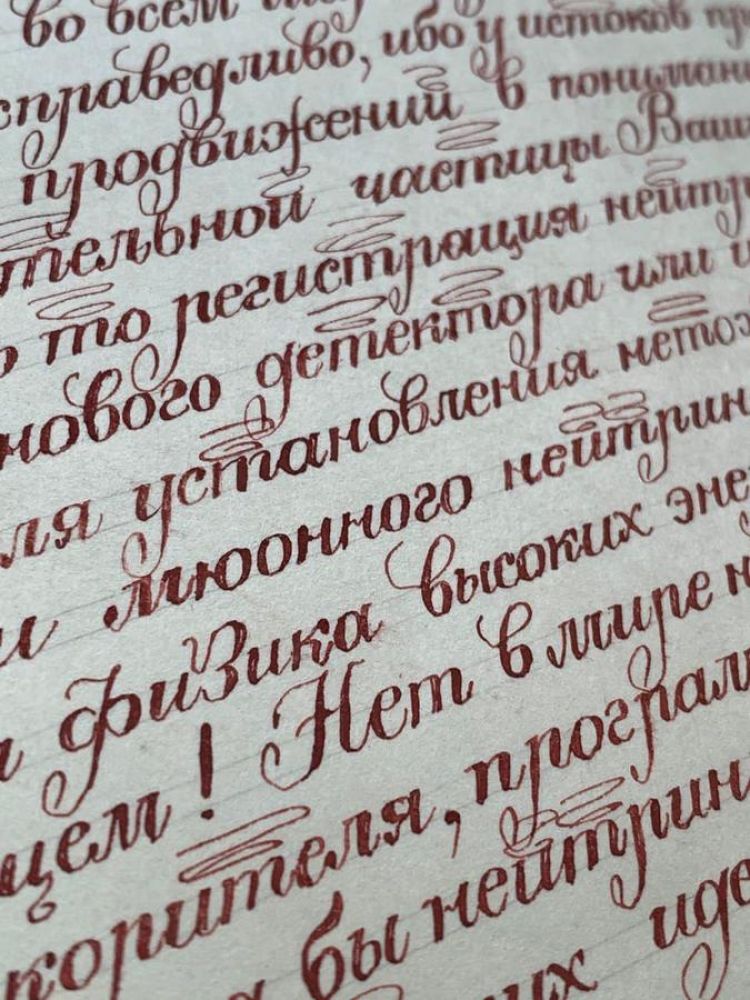 во всем
справедливо, ибо у истоков
продвижений в пониман
тельной частицы Ваш
то регистрация нейтр
нового детектора или
ля установления нетож
и мюонного нейтрин
физика высоких эне
щем! Нет в мире н
корителя, програм
бы нейтрин
их иде